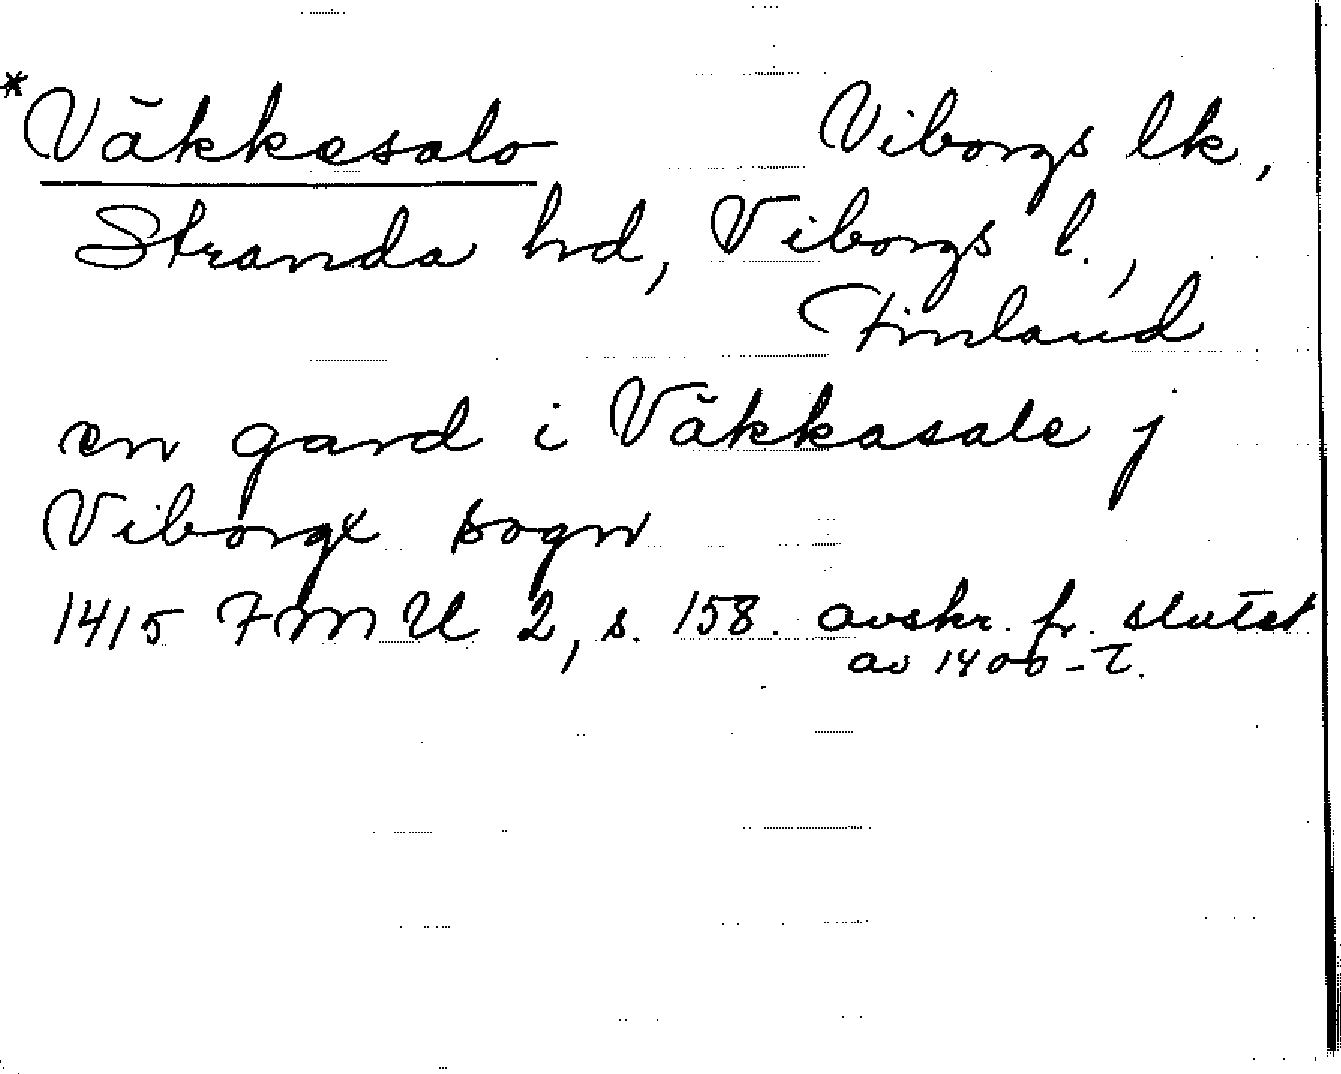 *Väkkesalo Viborgs lk,
Stranda hd, Viborgs l.,
Finland
en gard i Väkkasale j
Viborge sogn
1415 FMU 2, s. 158. avskr. fr. slutet
av 1400-t.